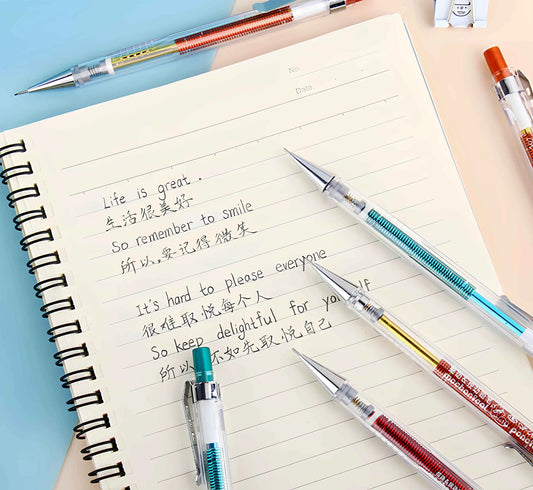 No.
Date.
Life is great.
生活很美好
So remember to smile
所以,要记得微笑
It's hard to please everyone
很难取悦每个人
So keep delightful for yourself
所以 不如先取悦自己